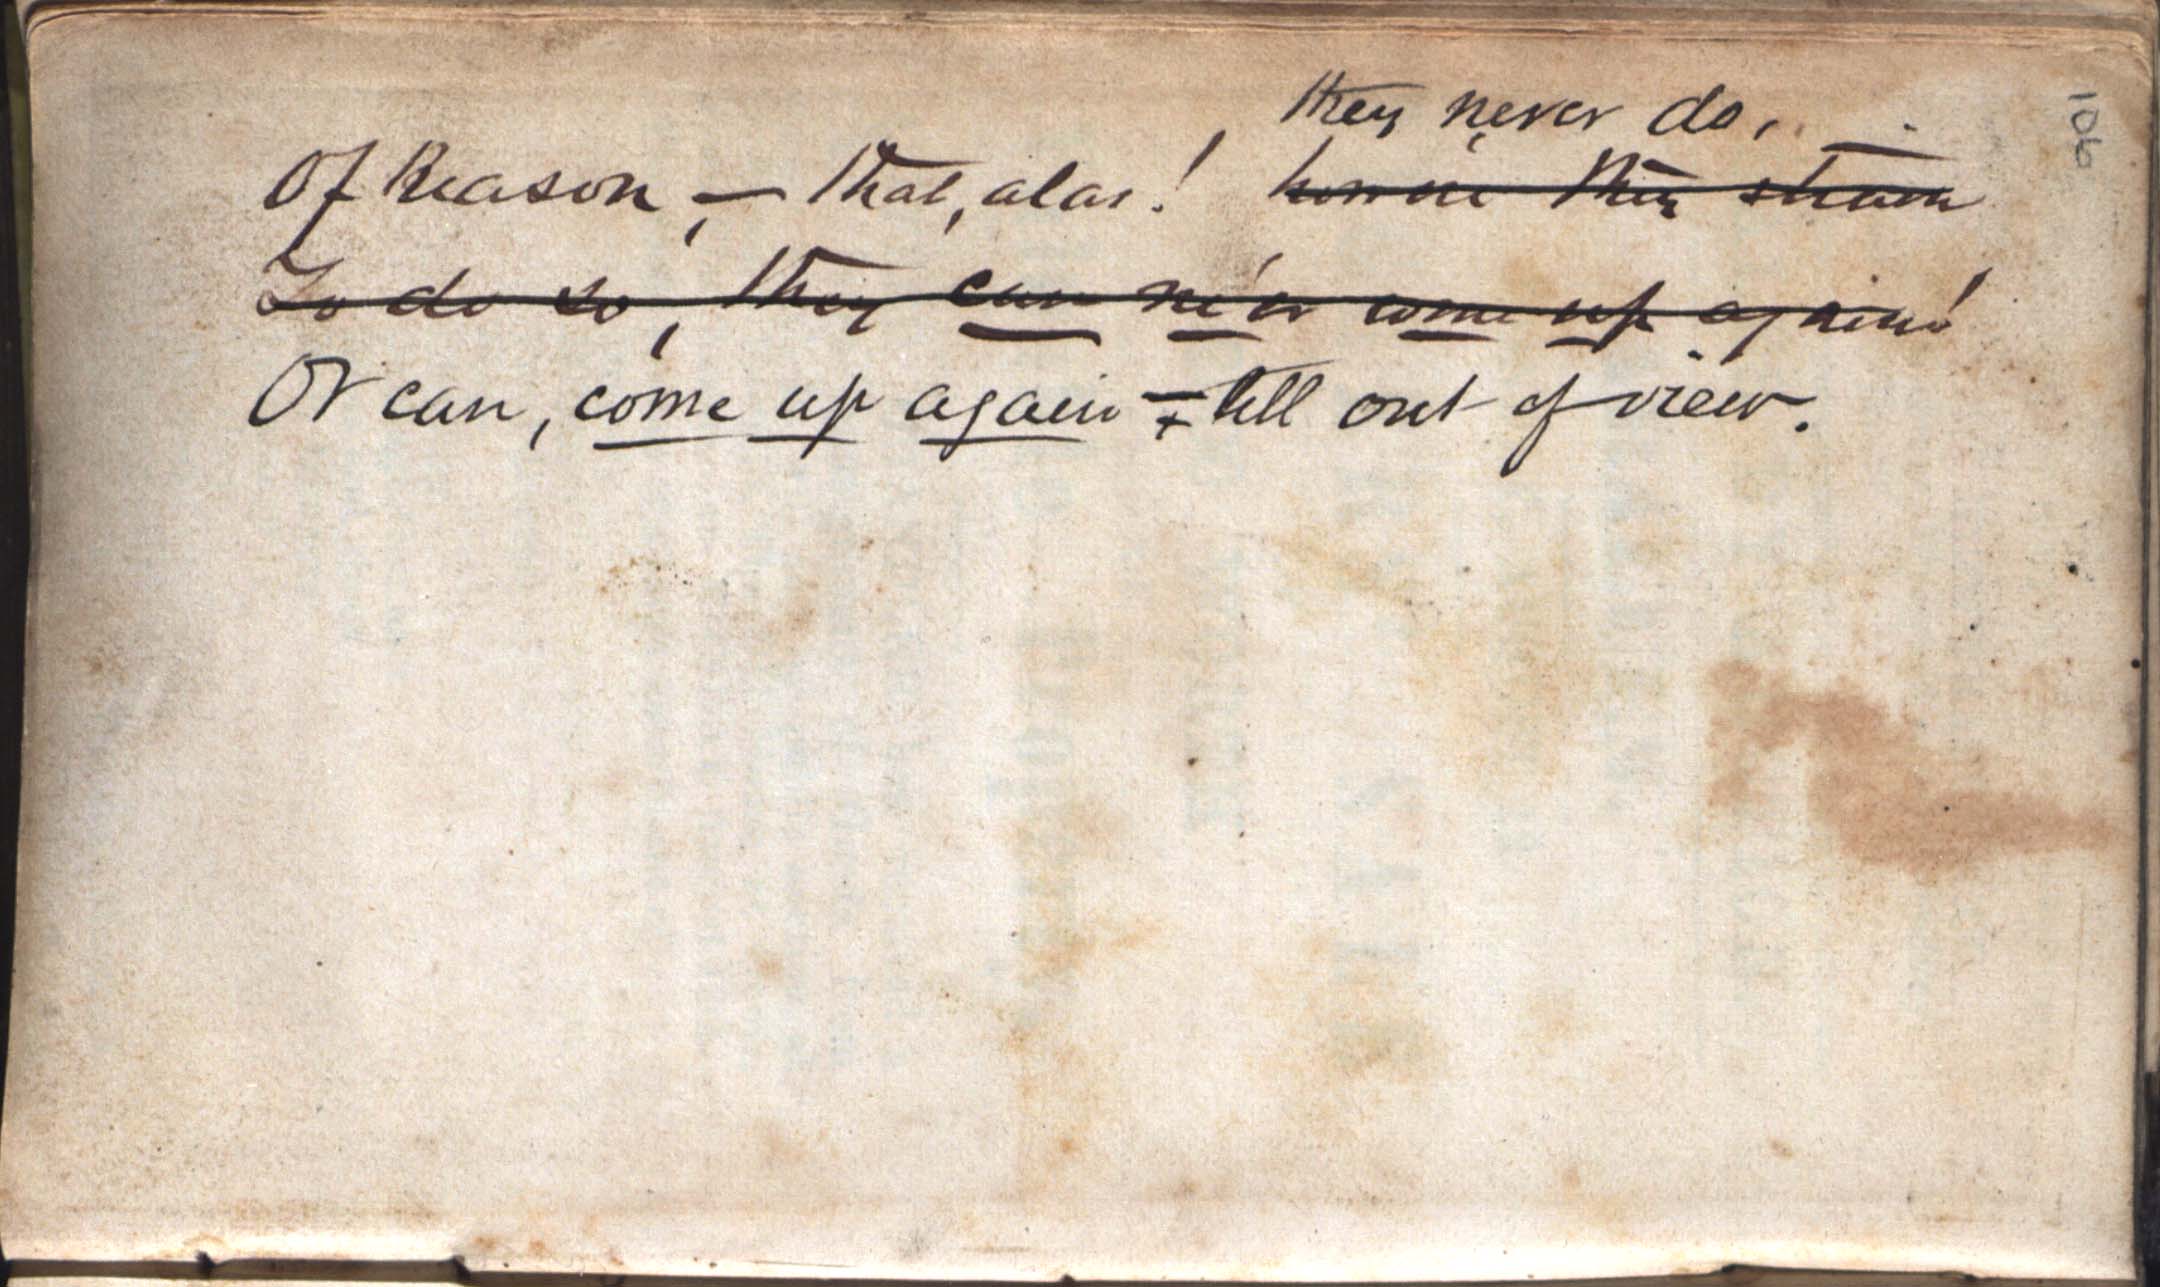 they never do,
Of Reason, — that, alas! howe'er they strain
To do so, they can ne'er come up again!
Or can, come up again — till out of view.
106